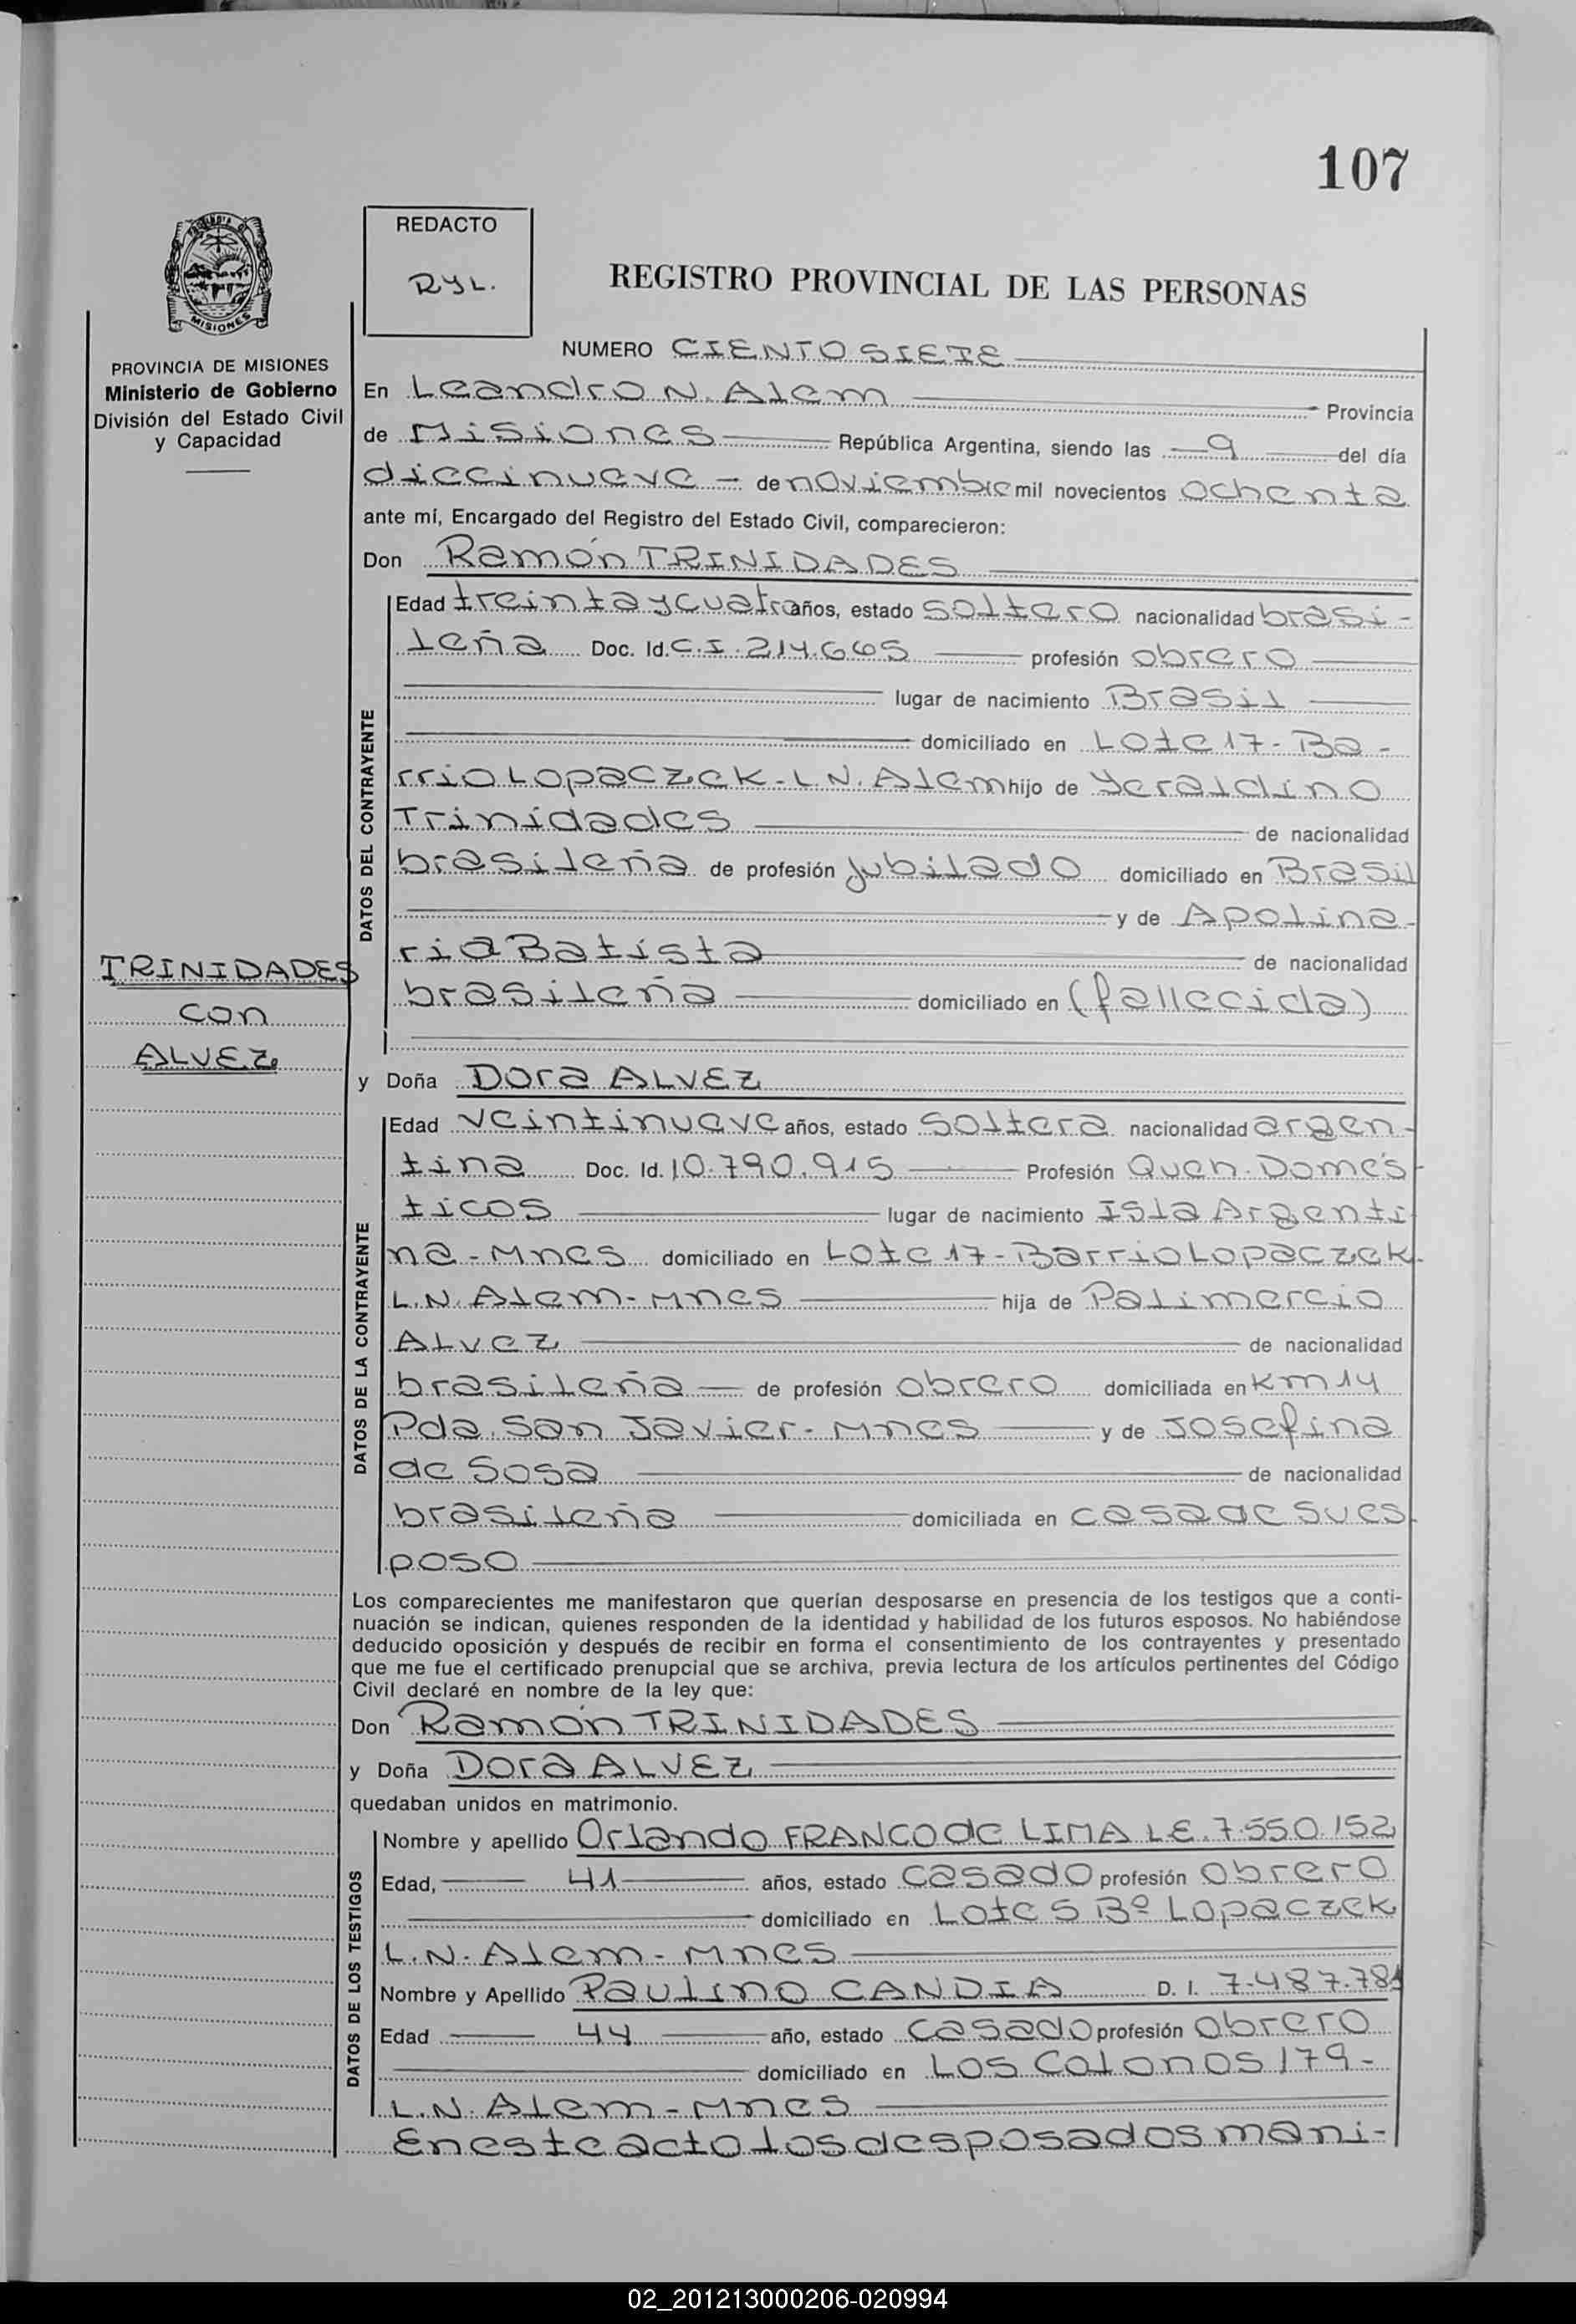 107
REDACTO
RYL.
REGISTRO PROVINCIAL DE LAS PERSONAS
MISIONES
PROVINCIA DE MISIONES
Ministerio de Gobierno
División del Estado Civil
y Capacidad
TRINIDADES
con
ALVEZ
NUMERO CIENTO SIETE
En Leandro N. Alem Provincia
de Misiones República Argentina, siendo las 9 del día
diecinueve de noviembre mil novecientos ochenta
ante mí, Encargado del Registro del Estado Civil, comparecieron:
Don Ramón TRINIDADES
DATOS DEL CONTRAYENTE
Edad treinta y cuatro años, estado soltero nacionalidad brasi-
leña Doc. Id. C.I. 214.665 profesión obrero
lugar de nacimiento Brasil
domiciliado en Lote 17 - Ba-
rrio Lopaczek - L.N. Alem hijo de Yeraldino
Trinidades de nacionalidad
brasileña de profesión jubilado domiciliado en Brasil
y de Apolina-
ria Batista de nacionalidad
brasileña domiciliado en (fallecida)
y Doña Dora ALVEZ
DATOS DE LA CONTRAYENTE
Edad veintinueve años, estado soltera nacionalidad argen-
tina Doc. Id. 10.790.915 Profesión Queh. Domés-
ticos lugar de nacimiento Isla Argenti-
na - Mnes domiciliado en Lote 17 - Barrio Lopaczek -
L.N. Alem - Mnes hija de Palimercio
Alvez de nacionalidad
brasileña de profesión obrero domiciliada en Km 14
Pda. San Javier - Mnes y de Josefina
de Sosa de nacionalidad
brasileña domiciliada en casa de su es-
poso
Los comparecientes me manifestaron que querían desposarse en presencia de los testigos que a conti-
nuación se indican, quienes responden de la identidad y habilidad de los futuros esposos. No habiéndose
deducido oposición y después de recibir en forma el consentimiento de los contrayentes y presentado
que me fue el certificado prenupcial que se archiva, previa lectura de los artículos pertinentes del Código
Civil declaré en nombre de la ley que:
Don Ramón TRINIDADES
y Doña Dora ALVEZ
quedaban unidos en matrimonio.
DATOS DE LOS TESTIGOS
Nombre y apellido Orlando FRANCO de LIMA L.E. 7.550.152
Edad, 41 años, estado casado profesión obrero
domiciliado en Lote 5 Bº Lopaczek
L.N. Alem - Mnes
Nombre y Apellido Paulino CANDIA D. I. 7.487.781
Edad 44 año, estado casado profesión obrero
domiciliado en Los Colonos 179 -
L.N. Alem - Mnes
En este acto los desposados mani-
02_201213000206-020994